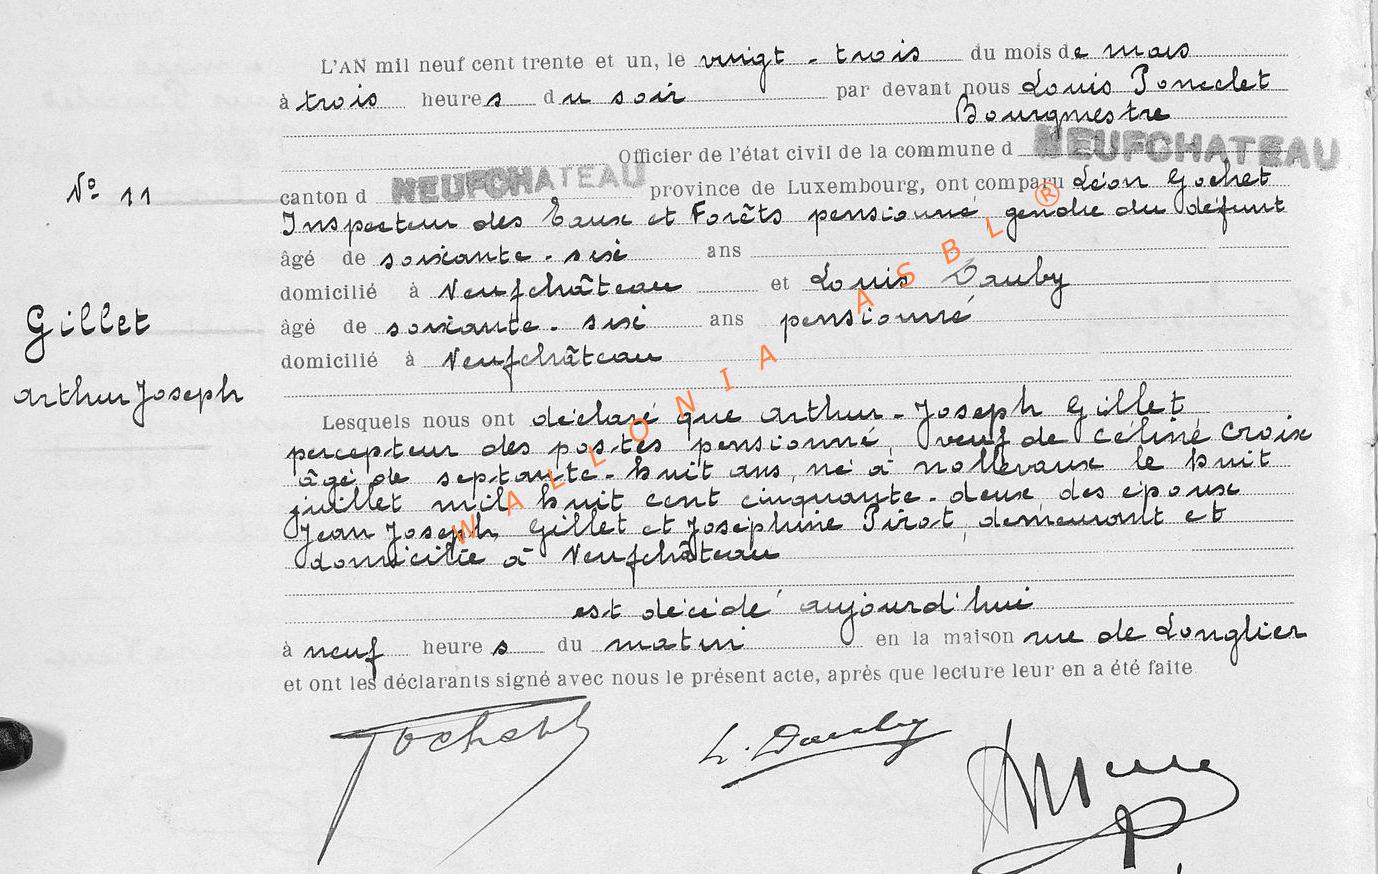 L'AN mil neuf cent trente et un, le vingt-trois du mois de mars
à trois heures du soir par devant nous Louis Poncelet
Bourgmestre
Officier de l'état civil de la commune d NEUFCHATEAU
N° 11
canton d NEUFCHATEAU province de Luxembourg, ont comparu Léon Gochet
Inspecteur des Eaux et Forêts pensionné, gendre du défunt
âgé de soixante-six ans
domicilié à Neufchâteau et Louis Dauby
Gillet
âgé de soixante-six ans pensionné
domicilié à Neufchâteau
Arthur Joseph
Lesquels nous ont déclaré que Arthur-Joseph Gillet
percepteur des postes pensionné, veuf de Céline Croix
âgé de septante-huit ans, né à Nollevaux le huit
juillet mil huit cent cinquante-deux des époux
Jean Joseph Gillet et Joséphine Pirot, demeurant et
domicilié à Neufchâteau
est décédé aujourd'hui
à neuf heures du matin en la maison rue de Longlier
et ont les déclarants signé avec nous le présent acte, après que lecture leur en a été faite
Gochet
L. Dauby
WALLONIA ASBL ®